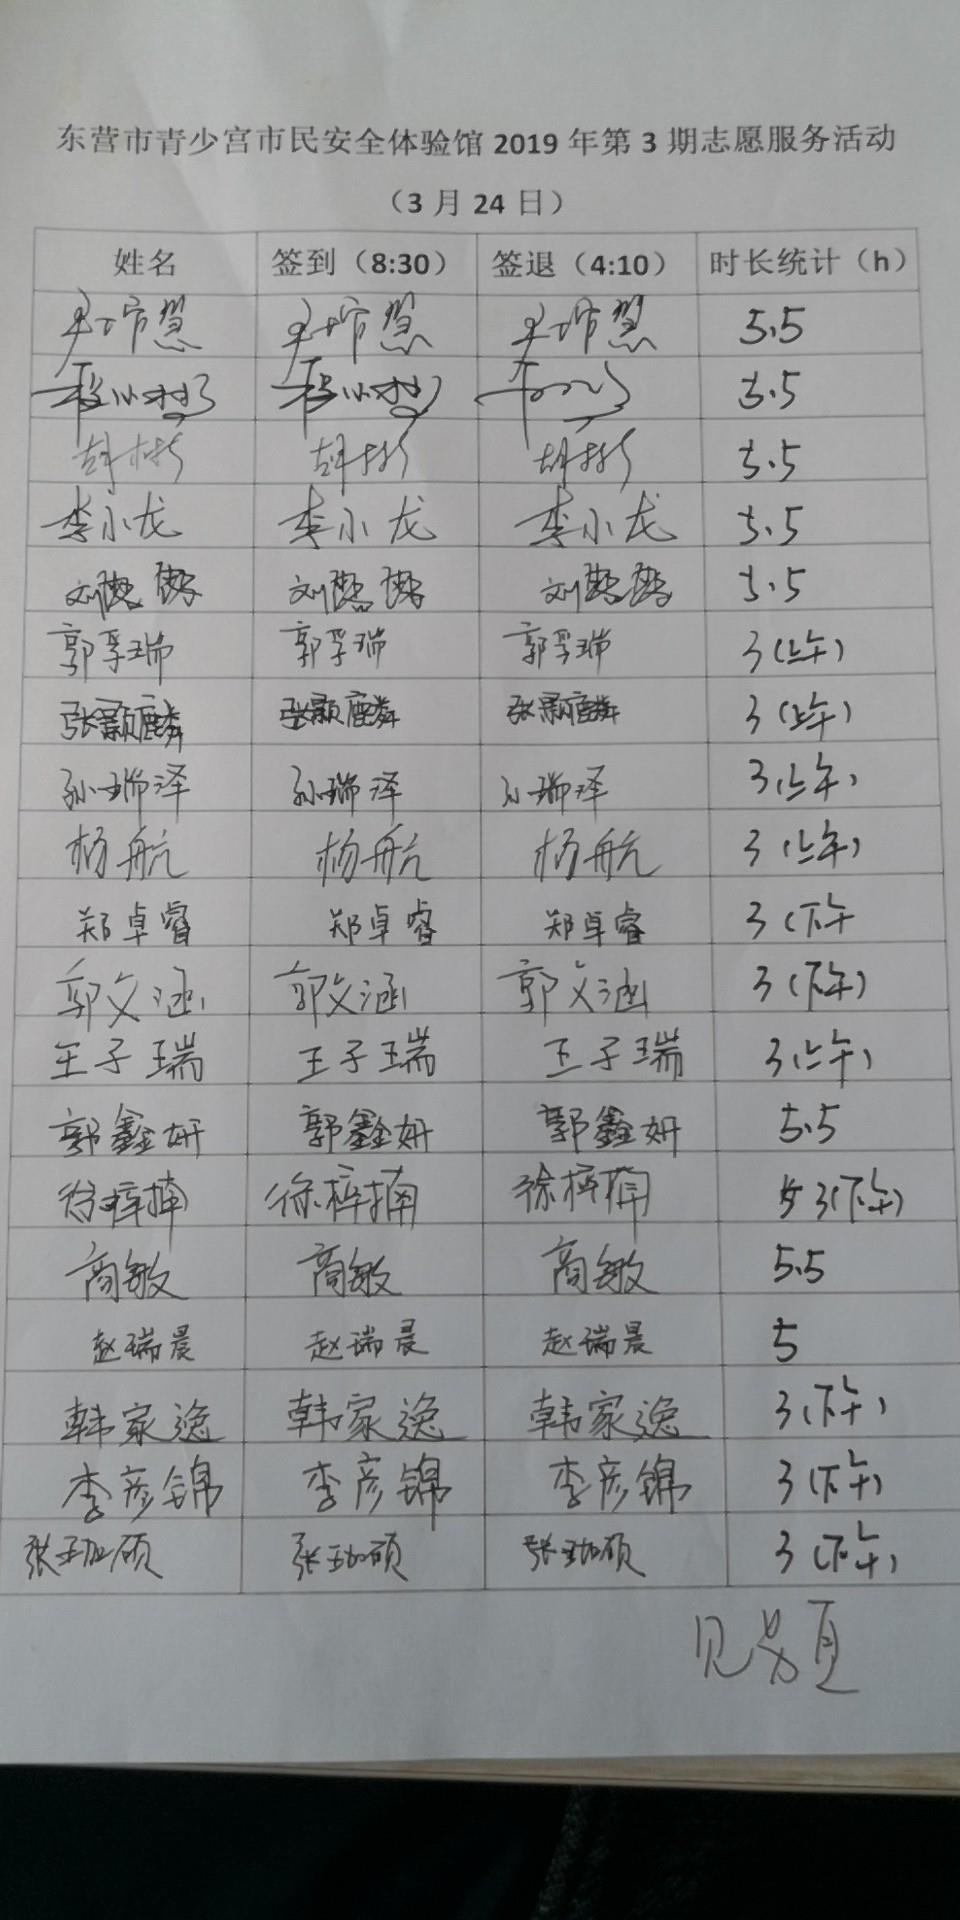 东营市青少宫市民安全体验馆 2019 年第 3 期志愿服务活动
（3 月 24 日）
姓名 签到（8:30） 签退（4:10） 时长统计（h）
5.5
5.5
5.5
李小龙 李小龙 李小龙 5.5
刘 刘 刘 5.5
郭孚瑞 郭孚瑞 郭孚瑞 3(上午)
张颢麟 张颢麟 张颢麟 3(上午)
孙瑞泽 孙瑞泽 孙瑞泽 3(上午)
杨航 杨航 杨航 3(上午)
郑卓睿 郑卓睿 郑卓睿 3(下午
郭文涵 郭文涵 郭文涵 3(下午)
王子瑞 王子瑞 王子瑞 3(上午)
郭鑫妍 郭鑫妍 郭鑫妍 5.5
徐梓楠 徐梓楠 徐梓楠 3(下午)
商敏 商敏 商敏 5.5
赵瑞晨 赵瑞晨 赵瑞晨 5
韩家逸 韩家逸 韩家逸 3(下午)
李彦锦 李彦锦 李彦锦 3(下午)
张珈硕 张珈硕 张珈硕 3(下午)
见另页